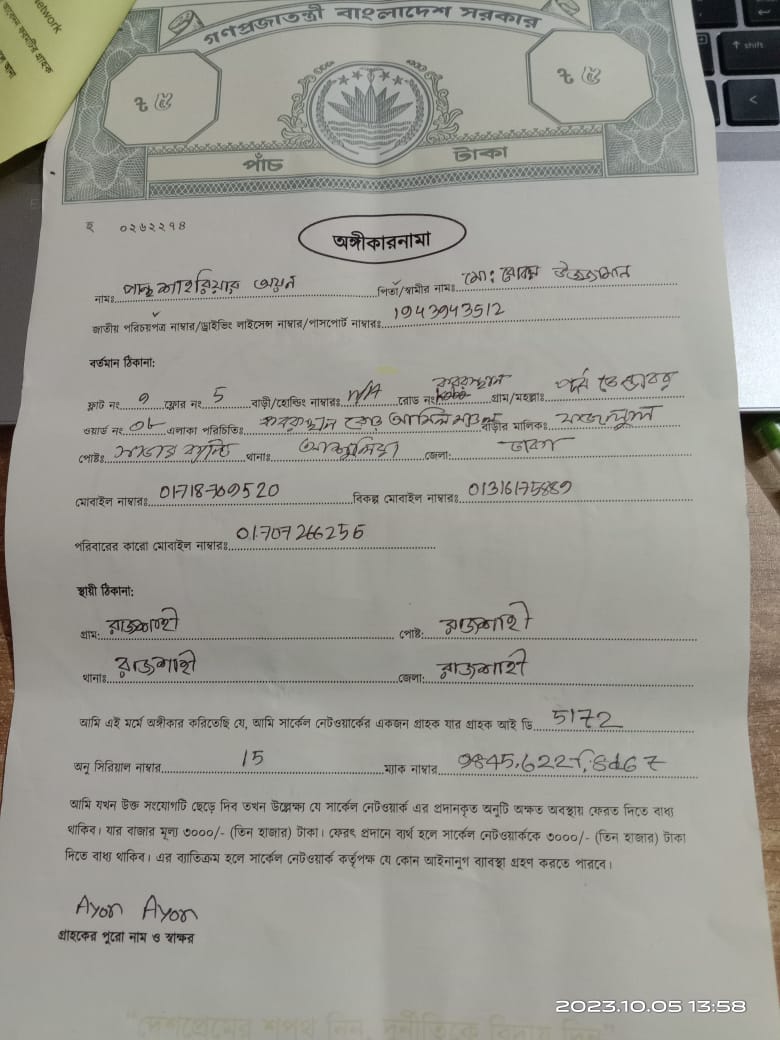 Network
গণপ্রজাতন্ত্রী বাংলাদেশ সরকার
৳ ৫ ৳ ৫
পাঁচ টাকা
হ ০২৬২২৭৪
অঙ্গীকারনামা
নামঃ শাহরিয়ার অয়ন পিতা/স্বামীর নামঃ মো:
জাতীয় পরিচয়পত্র নাম্বার/ড্রাইভিং লাইসেন্স নাম্বার/পাসপোর্ট নাম্বারঃ 1943943512
বর্তমান ঠিকানা:
ফ্লাট নং ফ্লোর নং 5 বাড়ী/হোল্ডিং নাম্বারঃ N/A রোড নং কবরস্থান গ্রাম/মহল্লাঃ
ওয়ার্ড নং এলাকা পরিচিতিঃ কবরস্থান রোড বাড়ীর মালিকঃ ফজলুল
পোষ্টঃ সাভার ক্যান্ট থানাঃ আশুলিয়া জেলা: ঢাকা
মোবাইল নাম্বারঃ 01718-769520 বিকল্প মোবাইল নাম্বারঃ 01316175889
পরিবারের কারো মোবাইল নাম্বারঃ 01707266256
স্থায়ী ঠিকানা:
গ্রাম: রাজশাহী পোষ্ট: রাজশাহী
থানাঃ রাজশাহী জেলা: রাজশাহী
আমি এই মর্মে অঙ্গীকার করিতেছি যে, আমি সার্কেল নেটওয়ার্কের একজন গ্রাহক যার গ্রাহক আই ডি 5172
অনু সিরিয়াল নাম্বার 15 ম্যাক নাম্বার
আমি যখন উক্ত সংযোগটি ছেড়ে দিব তখন উল্লেক্ষ্য যে সার্কেল নেটওয়ার্ক এর প্রদানকৃত অনুটি অক্ষত অবস্থায় ফেরত দিতে বাধ্য
থাকিব। যার বাজার মূল্য ৩০০০/- (তিন হাজার) টাকা। ফেরৎ প্রদানে ব্যর্থ হলে সার্কেল নেটওয়ার্ককে ৩০০০/- (তিন হাজার) টাকা
দিতে বাধ্য থাকিব। এর ব্যতিক্রম হলে সার্কেল নেটওয়ার্ক কর্তৃপক্ষ যে কোন আইনানুগ ব্যাবস্থা গ্রহণ করতে পারবে।
Ayon Ayon
গ্রাহকের পুরো নাম ও স্বাক্ষর
2023.10.05 13:58
"দেশপ্রেমের শপথ নিন, দুর্নীতিকে বিদায় দিন"
shift